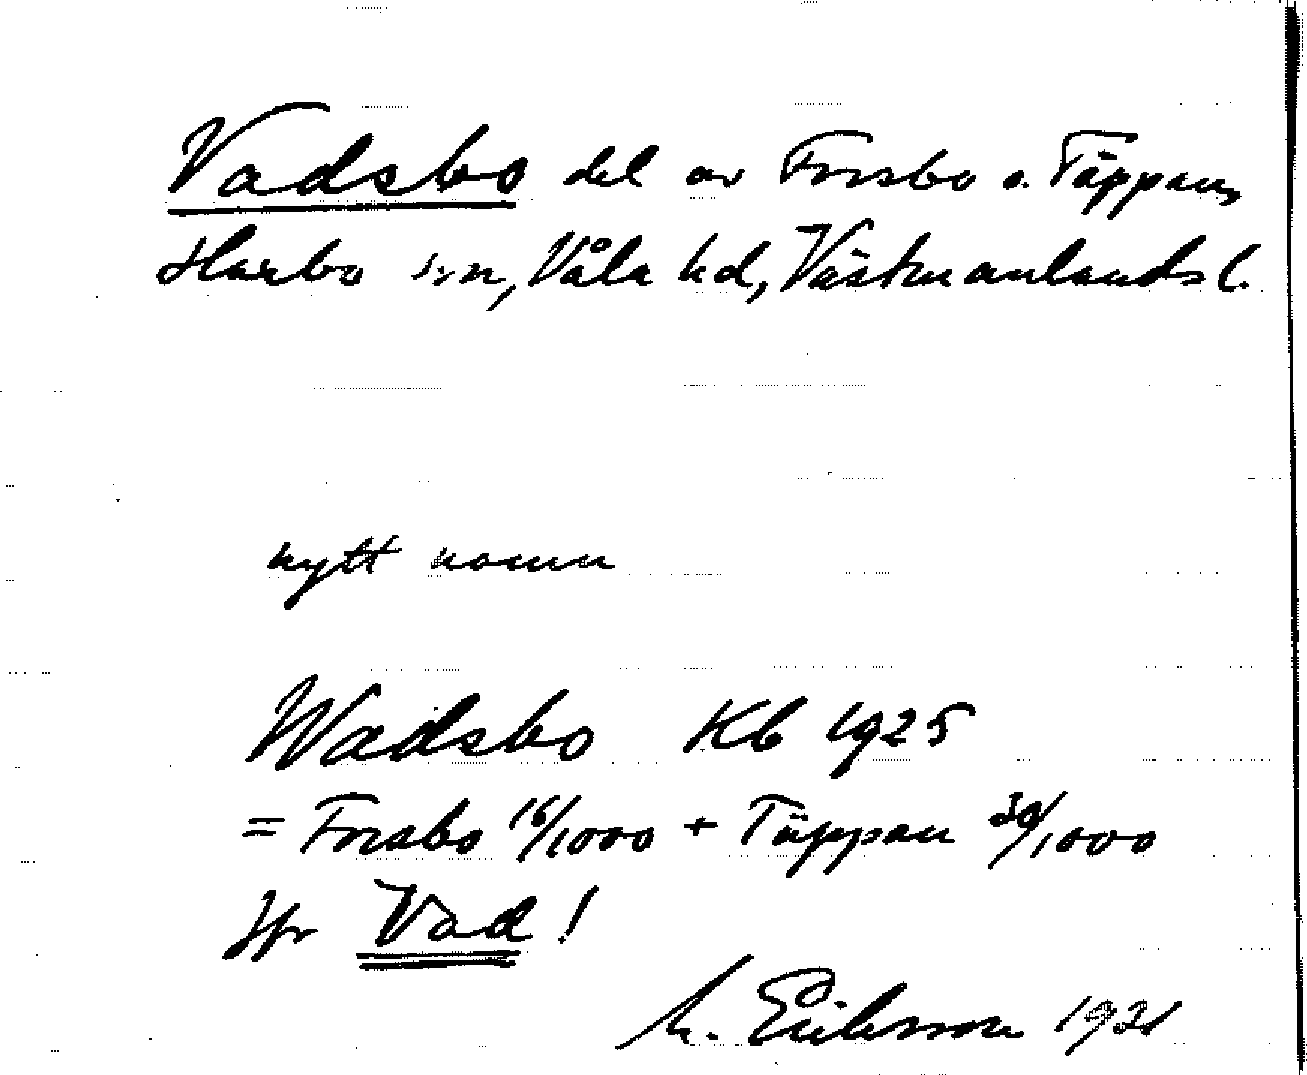 Vadsbo del av Forsbo o. Täppan,
Harbo sn, Våla hd, Västmanlands l.
nytt namn
Wadsbo Kb 1925
= Forsbo 16/1000 + Täppan 30/1000
Jfr Vad!
M. Eriksson 1931